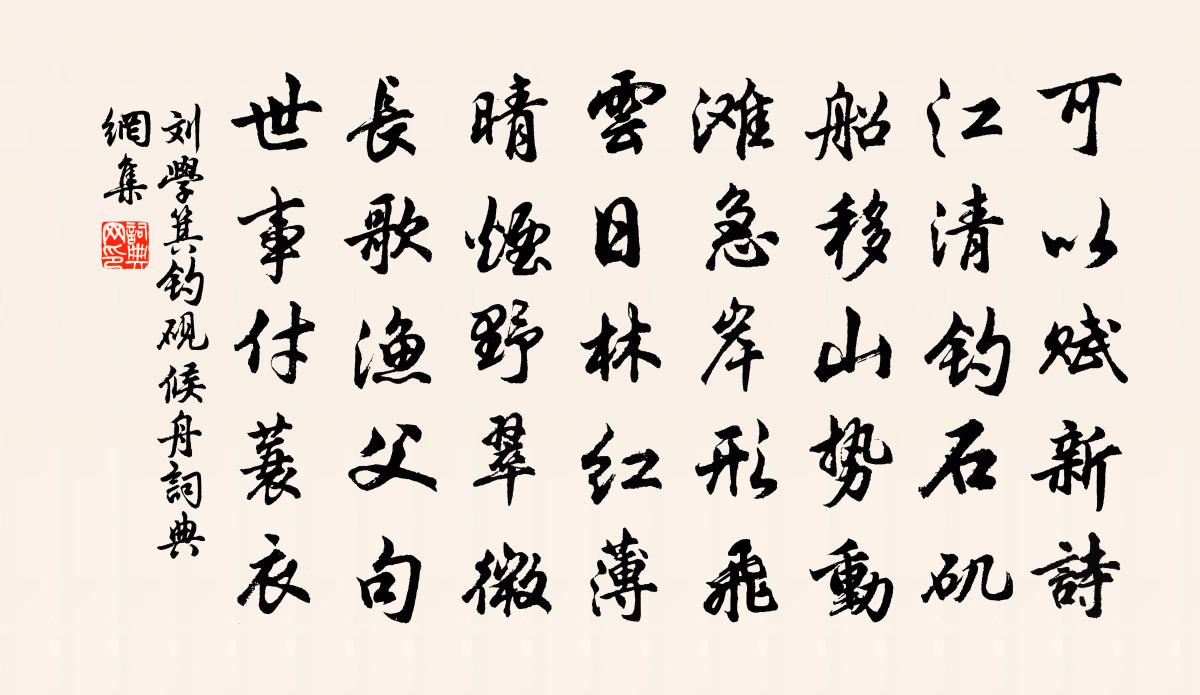 可以赋新詩
江清钓石矶
船移山势動
滩急岸形飛
雲日林红薄
晴煙野翠微
長歌漁父句
世事付蓑衣
刘學箕钓砚候舟詞典
網集
詞典
网印